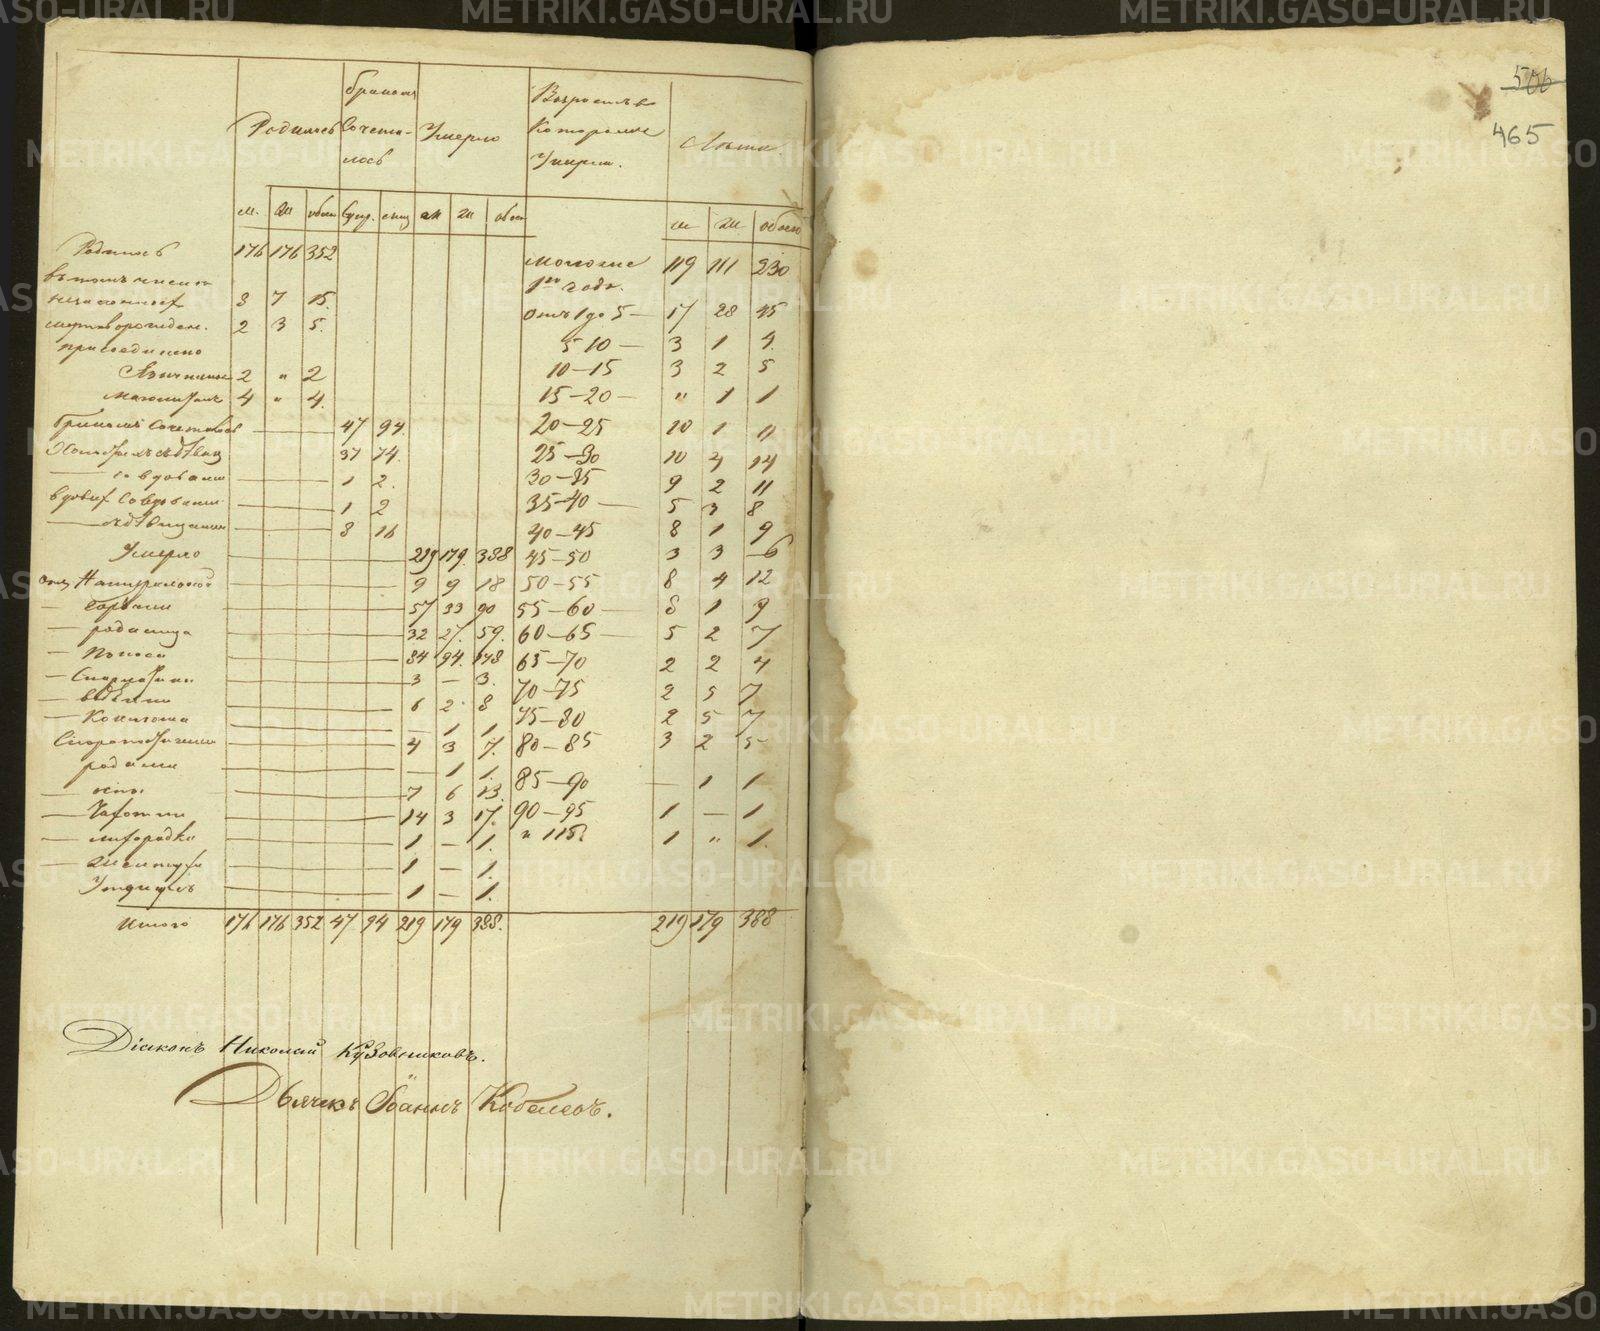 METRIKI.GASO-URAL.RU
506
465
Родилось
Бракомъ Сочета-
лось
Умерло
Возрастъ
Которые
Умерли.
Лѣта
м. ж обоег Супр. лиц м ж обоег
м ж обоего
Родилось 176 176 352
въ томъ числѣ
незаконнор. 8 7 15.
мертворожден. 2 3 5.
присоединено
2 „ 2
4 „ 4.
Бракомъ Сочеталось 47 94.
37 74.
1 2.
1 2
8 16
Умерло 219 179. 388
9 9 18
57 33 90
— родимца 32 27. 59.
— Поноса 84 94. 178
3 — 3.
6 2. 8
— 1 1.
4 3 7.
родами — 1 1.
— оспы 7 6 13.
— Чахотки 14 3 17.
— лихорадки 1 — 1.
1 — 1.
1 — 1.
Итого 176 176 352 47 94 219 179 388.
моложе
1го года. 119 111 230
отъ 1 до 5 — 17 28 45
5-10 — 3 1 4.
10-15 3 2 5
15-20 — „ 1 1
20-25 10 1 11
25-30 10 4 14
30-35 9 2 11
35-40 — 5 3 8
40-45 8 1 9
45-50 3 3 6
50-55 8 4 12
55-60 — 8 1 9
60-65 — 5 2 7
65-70 2 2 4
70-75 2 5 7
75-80 2 5 7
80-85 3 2 5
85-90 — 1 1
90-95 1 — 1
„ 115 1 „ 1.
219 179 388
Діаконъ Николай Кузовниковъ.
Дьячекъ Іоаннъ Кобелевъ.